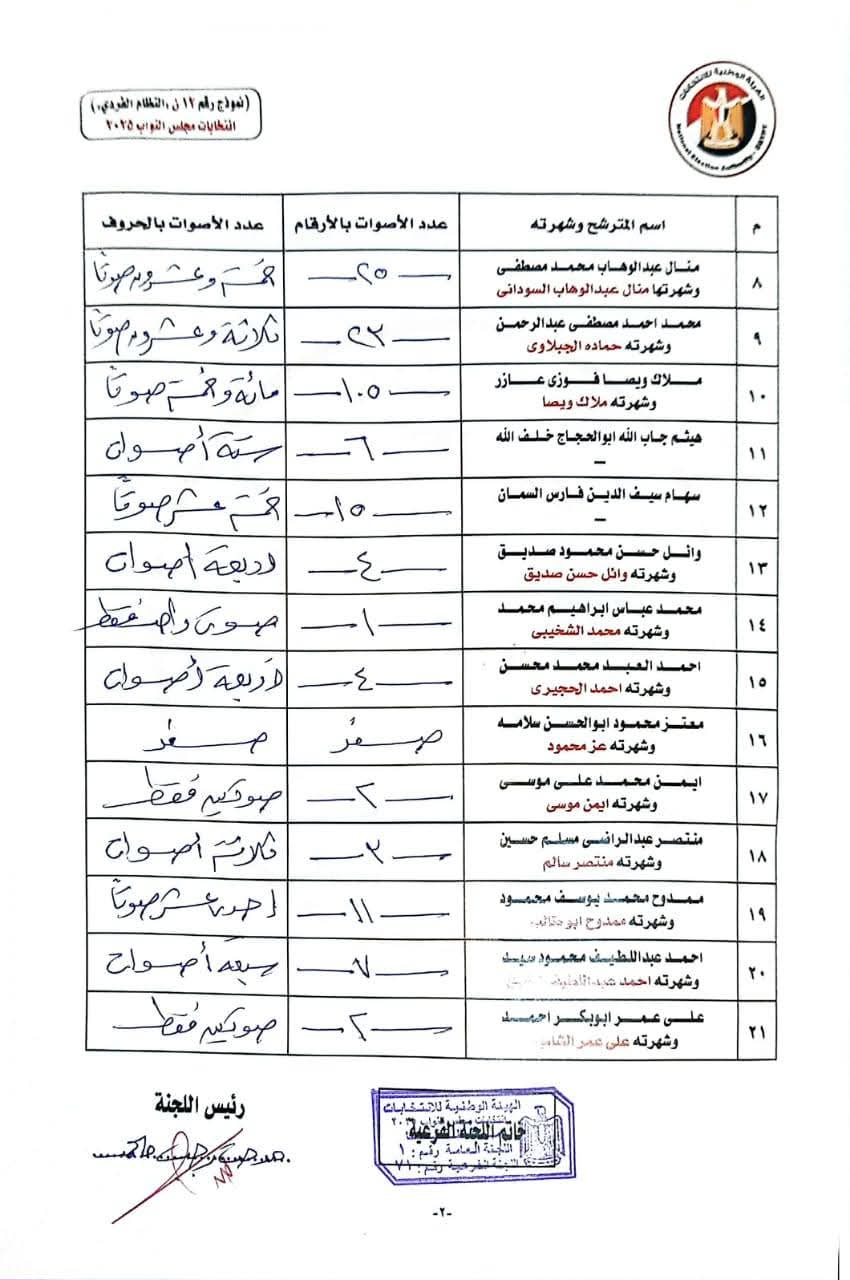 (نموذج رقم ١٢ ن «النظام الفردي»)
انتخابات مجلس النواب ٢٠٢٥
الهيئة الوطنية للانتخابات
National Election Authority - EGYPT
م اسم المترشح وشهرته عدد الأصوات بالأرقام عدد الأصوات بالحروف
٨ منال عبدالوهاب محمد مصطفى ٢٥ خمسة وعشرون صوتاً
وشهرتها منال عبدالوهاب السودانى
٩ محمد احمد مصطفى عبدالرحمن ٢٣ ثلاثة وعشرون صوتاً
وشهرته حماده الجبلاوى
١٠ ملاك ويصا فوزى عازر ١٠٥ مائة وخمسة صوتاً
وشهرته ملاك ويصا
١١ هيثم جاب الله ابوالحجاج خلف الله ٦ ستة أصوات
–
١٢ سهام سيف الدين فارس السمان ١٥ خمسة عشر صوتاً
–
١٣ وائل حسن محمود صديق ٤ اربعة أصوات
وشهرته وائل حسن صديق
١٤ محمد عباس ابراهيم محمد ١ صوت واحد فقط
وشهرته محمد الشخيبى
١٥ احمد العبد محمد محسن ٤ اربعة أصوات
وشهرته احمد الحجيرى
١٦ معتز محمود ابوالحسن سلامه صفر صفر
وشهرته عز محمود
١٧ ايمن محمد على موسى ٢ صوتين فقط
وشهرته ايمن موسى
١٨ منتصر عبدالراضى مسلم حسين ٣ ثلاثة أصوات
وشهرته منتصر سالم
١٩ ممدوح محمد يوسف محمود ١١ احدى عشر صوتاً
وشهرته ممدوح ابو
٢٠ احمد عبداللطيف محمود سيد ٧ سبعة أصوات
وشهرته احمد عبداللطيف
٢١ على عمر ابوبكر احمد ٢ صوتين فقط
وشهرته على عمر
رئيس اللجنة
خاتم اللجنة الفرعية
الهيئة الوطنية للانتخابات
اللجنة العامة رقم : ١
اللجنة الفرعية رقم : ٧١
-٢-